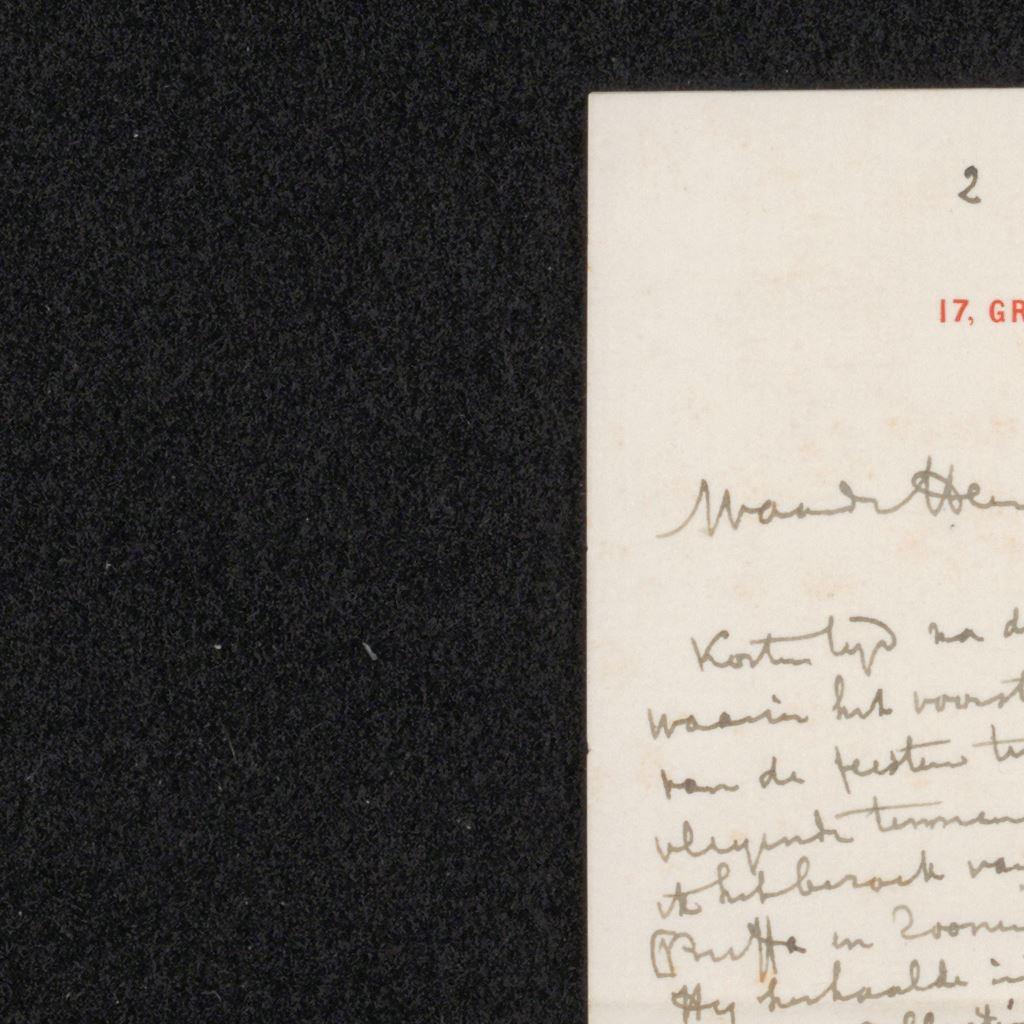 2
17, GR
Waarde Heer
Korten tijd na d
waarin het voorst
van de feesten te
vliegende tennen
ik het bezoek va
Buffa en Zoonen
Hij herhaalde i